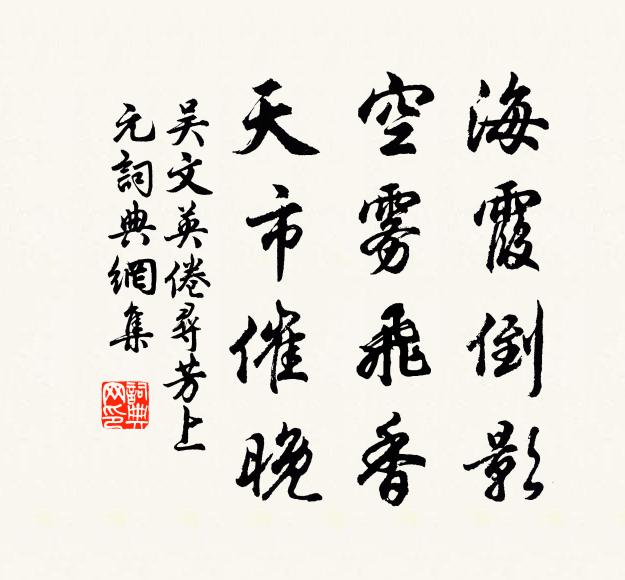 海霞倒影
空雾飛香
天市催晚
吴文英倦尋芳上
元詞典網集
詞典網印